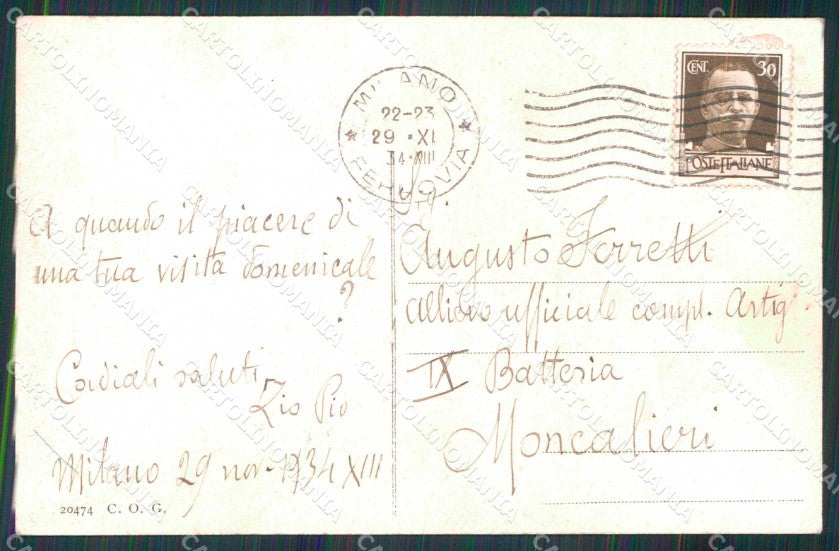 MILANO
22-23
29 · XI
34 · XIII
FERROVIA
CENT. 30
POSTE ITALIANE
A quando il piacere di
una tua visita domenicale
?
Cordiali saluti
Zio Pio
Milano 29 nov. 1934 XIII
20474 C. O. G.
Augusto Ferretti
allievo ufficiale compl. Artigl.
IX Batteria
Moncalieri
CARTOLINOMANIA